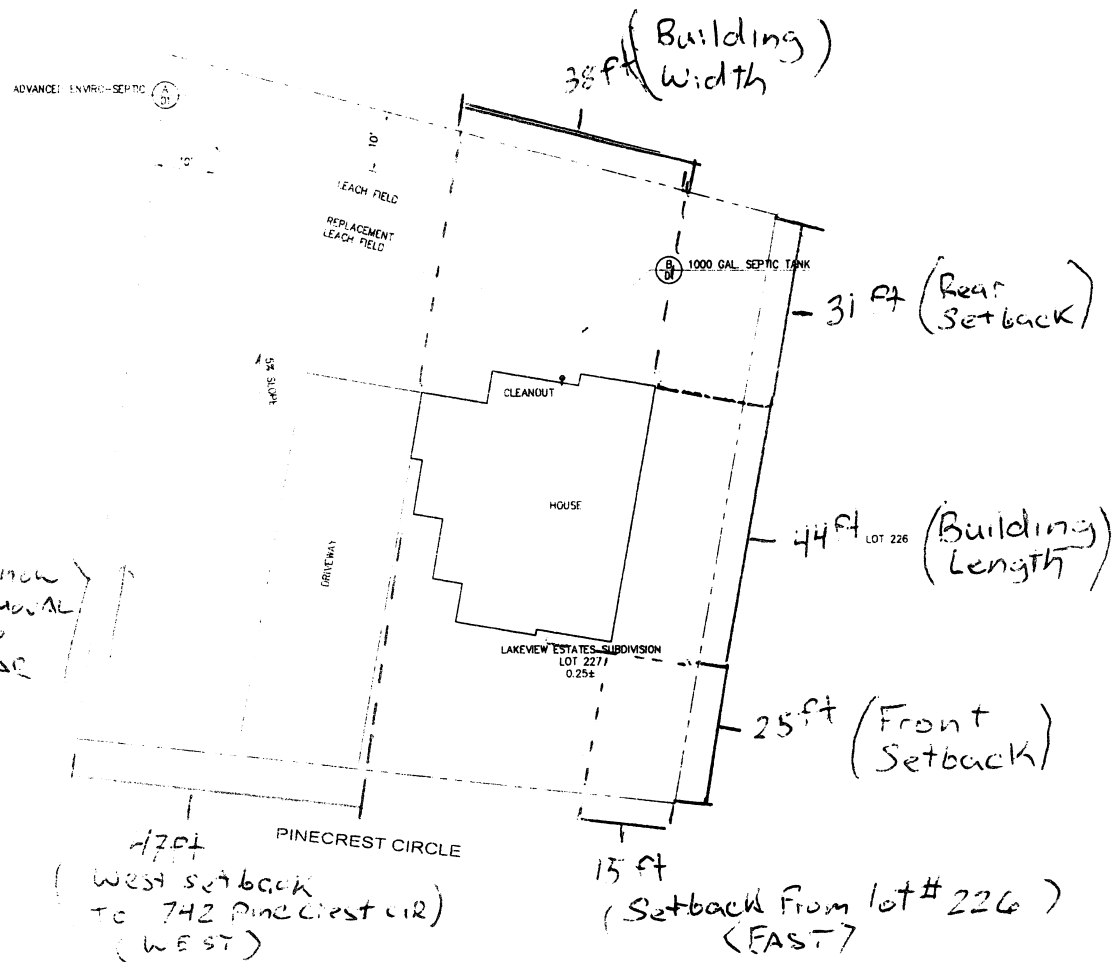 38 ft (Building
Width)
ADVANCED ENVIRO-SEPTIC
A
D1
10'
10'
LEACH FIELD
REPLACEMENT
LEACH FIELD
B
D1
1000 GAL. SEPTIC TANK
31 ft (Rear
Setback)
5% SLOPE
CLEANOUT
HOUSE
DRIVEWAY
44 ft
LOT 226
(Building
Length)
LAKEVIEW ESTATES SUBDIVISION
LOT 227
0.25±
25 ft (Front
Setback)
PINECREST CIRCLE
47 ft
(West setback
To 742 Pinecrest CIR)
(WEST)
15 ft
(Setback From lot # 226)
(EAST)